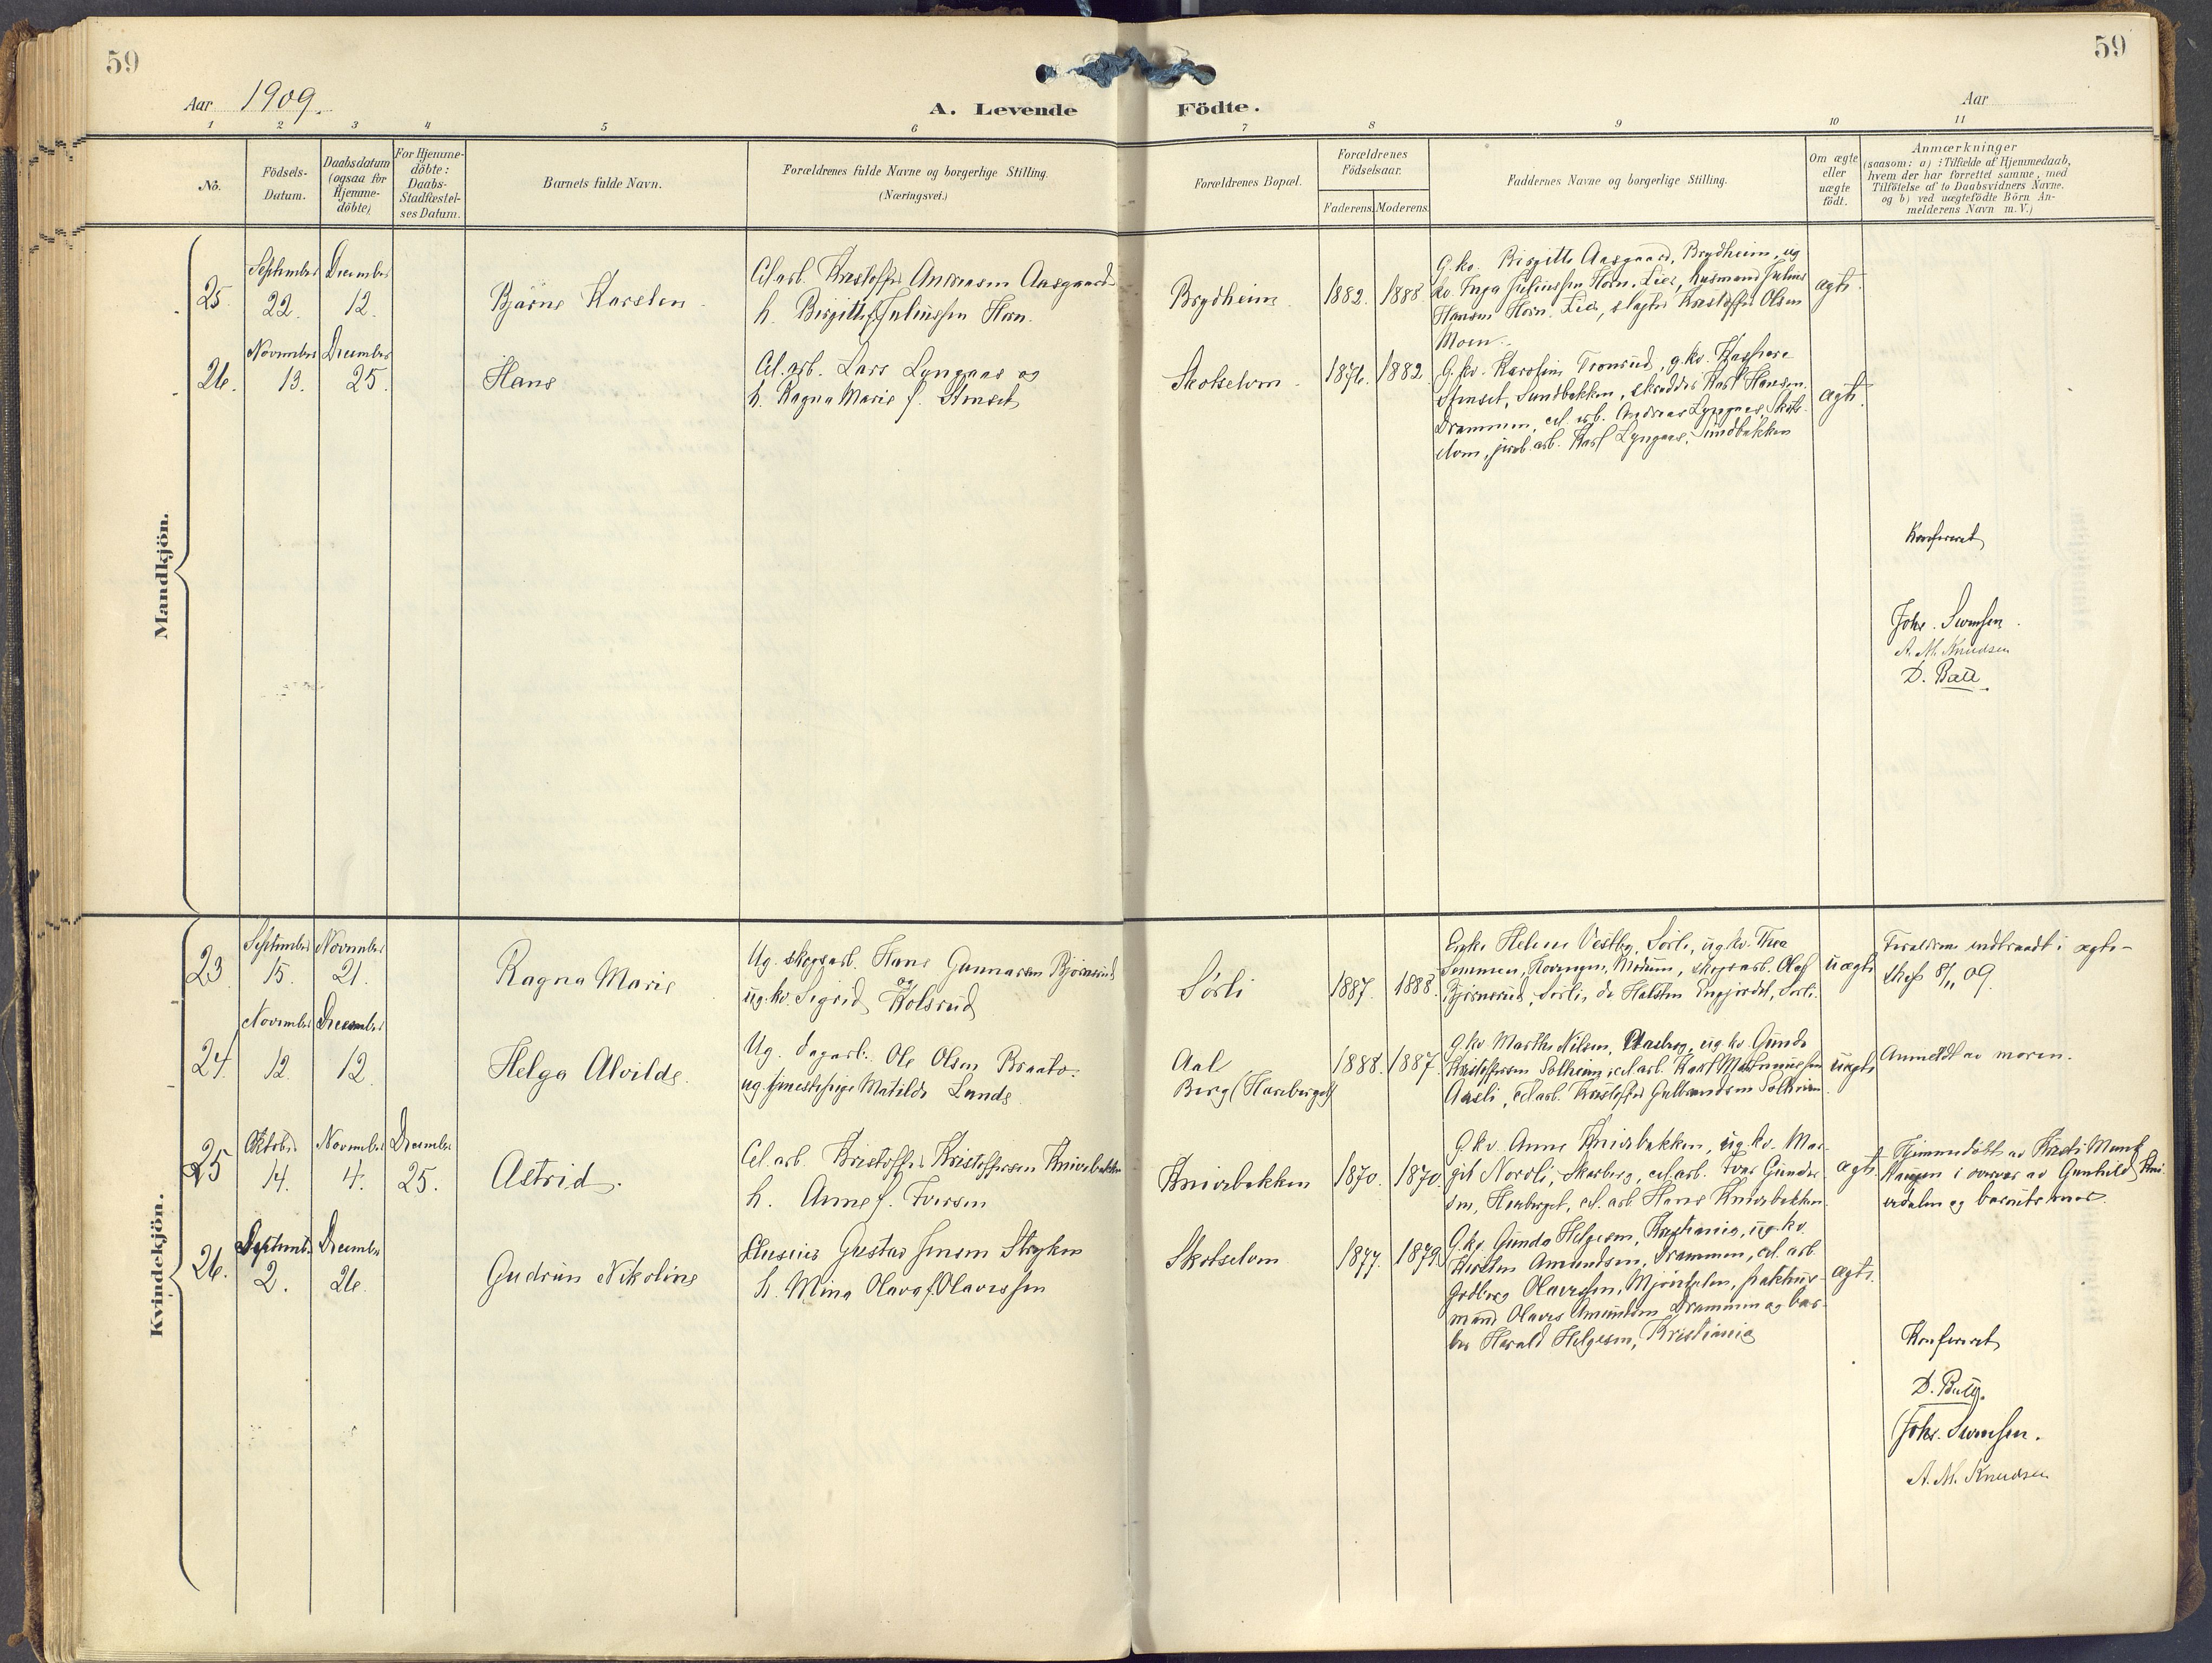 59
59
Aar 1909.
A. Levende Födte.
Aar
1 2 3 4 5 6 7 8 9 10 11
No.
Födsels-
Datum.
Daabsdatum
(ogsaa for
Hjemme-
döbte)
For Hjemme-
döbte:
Daabs-
Stadfæstel-
ses Datum.
Barnets fulde Navn.
Forældrenes fulde Navne og borgerlige Stilling.
(Næringsvei.)
Forældrenes Bopæl.
Forældrenes
Födselsaar.
Faderens.
Moderens.
Faddernes Navne og borgerlige Stilling.
Om ægte
eller
uægte
födt.
Anmærkninger
(saasom: a) i Tilfælde af Hjemmedaab,
hvem der har forrettet samme, med
Tilföielse af to Daabsvidners Navne.
og b) ved uægtefödte Börn An-
melderens Navn m. V.)
Mandkjön.
25.
September
22.
December
12.
Bjarne Karsten
Cel.arb. Kristoffer Andreasen Aasgaard
h. Birgitte f. Juliussen Horn.
Brydheim
1882.
1888
G.kv. Birgitte Aasgaard, Brydheim, ug
kv. Inga Juliussen Horn, Lier, husmand Julius
Hansen Horn, Lier, slagter Kristoffer Olsen
Moen.
ægte.
26.
November
13.
December
25.
Hans
Cel.arb. Lars Lyngaas og
h. Ragna Marie f. Stenset
Skotselven
1876.
1882.
G.kv. Karoline Tronrud, g.kv. Kaspara
Stenset, Sundbakken, skrædder Karl Hansen
Drammen, cel. arb. Andreas Lyngaas, Skots-
elven, jernb.arb. Karl Lyngaas, Sundbakken
ægte.
Konfereret
Johs. Svensen.
A. M. Knudsen
D. Bull.
Kvindekjön.
23
September
15.
November
21.
Ragna Marie
Ug. skogsarb. Hans Gunnarsen Bjørnerud
og
ug.kv. Sigrid Kolsrud
Sørli
1887.
1888.
Enke Helene Vestby, Sørli, ug.kv. Thea
Bjørnerud, Sørli, do Halsten
uægte
Forældrene indtraadt i ægte-
skap 8/11 09.
24.
November
12.
December
12.
Helga Alvilde.
Ug. dagarb. Ole Olsen Braato.
ug. tjenestepige Matilde Lunde
Aal
Berg (Hareberget)
1888.
1887.
G.kv. Marthe Nilsen, ug.kv. Gunda
Kristoffersen Solheim, cel.arb. Karl
Aasli, cel.arb. Kristoffer Gulbrandsen Solheim
uægte
Anmeldt av moren.
25
Oktober
14.
November
4.
December
25.
Astrid.
Cel.arb. Kristoffer Kristoffersen Knivebakken
h. Anne f. Iversen
Knivebakken
1870.
1870.
G.kv. Anne Knivebakken, ug.kv. Mar-
git Nordli, Skarberg, cel.arb. Ivar Gunder-
sen, Hareberget, cel.arb. Hans Knivebakken
ægte.
Hjemmedøbt av
Haugen i overvær av Gunhild
og barnets mor.
26.
September
2.
December
26.
Gudrun Nikoline
Gustav Jensen Stryken
h. Mina Olava f. Olavessen
Skotselven
1877.
1879
G.kv. Gunda Helgesen, Kristiania, ug.kv.
Kirsten Amundsen, Drammen, cel.arb.
Godberg Olavessen, Mjøndalen, pakhus-
mand Olaves Amundsen, Drammen og bar-
ber Harald Helgesen, Kristiania
ægte.
Konfereret
D. Bull.
Johs. Svensen.
A. M. Knudsen